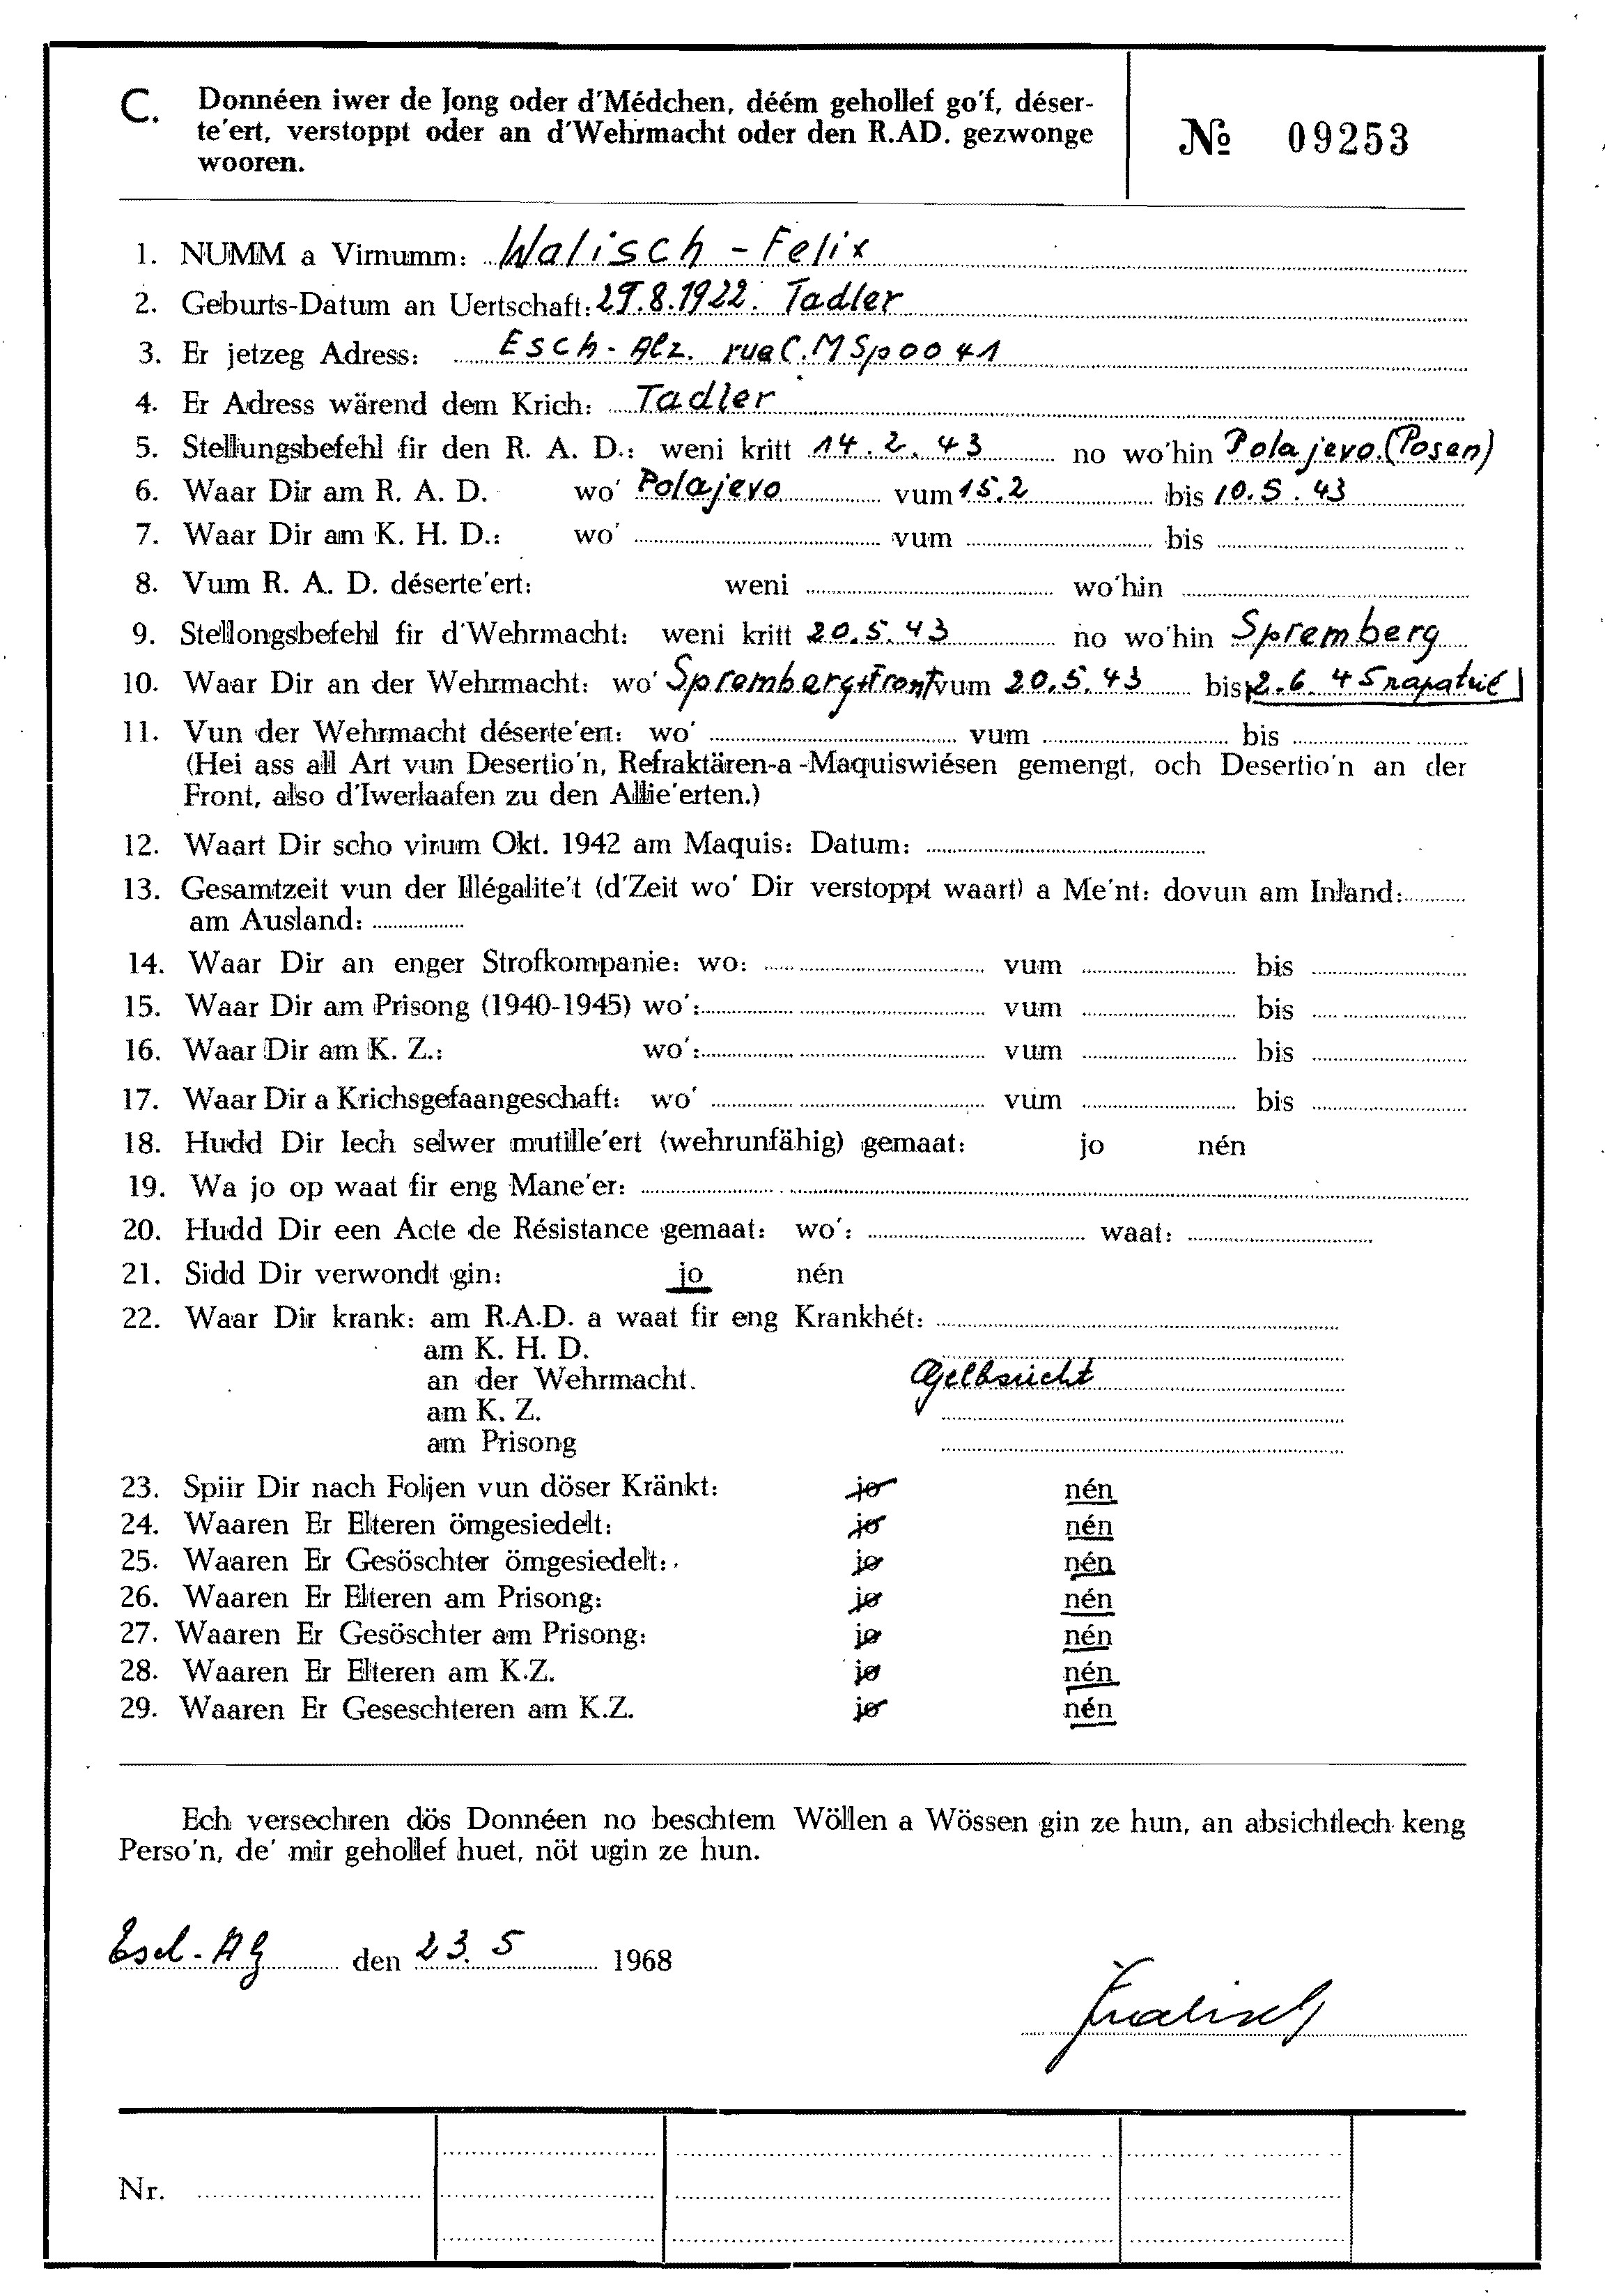 C. Donnéen iwer de Jong oder d'Médchen, déém gehollef go'f, déser-
te'ert, verstoppt oder an d'Wehrmacht oder den R.AD. gezwonge
wooren.
№ 09253
1. NUMM a Virnumm: Walisch - Felix
2. Geburts-Datum an Uertschaft: 29.8.1922. Tadler
3. Er jetzeg Adress: Esch - Alz. rue C.M Spoo 41
4. Er Adress wärend dem Krich: Tadler
5. Stellungsbefehl fir den R. A. D.: weni kritt 14.2.43 no wo'hin Polajevo.(Posen)
6. Waar Dir am R. A. D. wo' Polajevo vum 15.2 bis 10.5.43
7. Waar Dir am K. H. D.: wo' vum bis
8. Vum R. A. D. déserte'ert: weni wo'hin
9. Stellongsbefehl fir d'Wehrmacht: weni kritt 20.5.43 no wo'hin Spremberg
10. Waar Dir an der Wehrmacht: wo' Spremberg+Front vum 20.5.43 bis 2.6.45 rapatrié
11. Vun der Wehrmacht déserte'ert: wo' vum bis
(Hei ass all Art vun Desertio'n, Refraktären-a-Maquiswiésen gemengt, och Desertio'n an der
Front, also d'Iwerlaafen zu den Allie'erten.)
12. Waart Dir scho virum Okt. 1942 am Maquis: Datum:
13. Gesamtzeit vun der Illégalite't (d'Zeit wo' Dir verstoppt waart) a Me'nt: dovun am Inland:
am Ausland:
14. Waar Dir an enger Strofkompanie: wo: vum bis
15. Waar Dir am Prisong (1940-1945) wo': vum bis
16. Waar Dir am K. Z.: wo': vum bis
17. Waar Dir a Krichsgefaangeschaft: wo' vum bis
18. Hudd Dir Iech selwer mutille'ert (wehrunfähig) gemaat: jo nén
19. Wa jo op waat fir eng Mane'er:
20. Hudd Dir een Acte de Résistance gemaat: wo': waat:
21. Sidd Dir verwondt gin: jo nén
22. Waar Dir krank: am R.A.D. a waat fir eng Krankhét:
am K. H. D.
an der Wehrmacht. Gelbsucht
am K. Z.
am Prisong
23. Spiir Dir nach Foljen vun döser Kränkt: jo nén
24. Waaren Er Elteren ömgesiedelt: jo nén
25. Waaren Er Gesöschter ömgesiedelt: jo nén
26. Waaren Er Elteren am Prisong: jo nén
27. Waaren Er Gesöschter am Prisong: jo nén
28. Waaren Er Elteren am K.Z. jo nén
29. Waaren Er Geseschteren am K.Z. jo nén
Ech versechren dös Donnéen no beschtem Wöllen a Wössen gin ze hun, an absichtlech keng
Perso'n, de' mir gehollef huet, nöt ugin ze hun.
Esch-Alz den 23.5 1968
FWalisch
Nr.